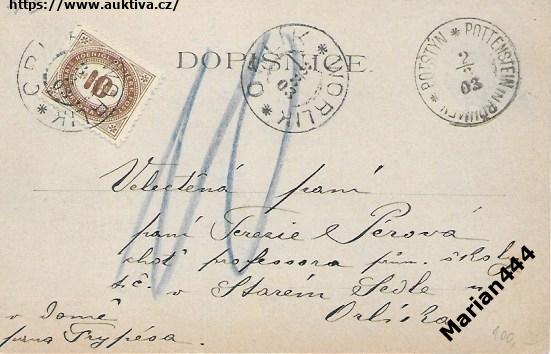 https://www.auktiva.cz/
DOPISNICE.
ORLÍK * WORLIK *
10
POTŠTÝN * POTTENSTEIN IN BÖHMEN *
2
03
10
Velectěná paní
paní Terezie Pérová
choť professora prům. školy
t.č. v Starém Sedle u
Orlíka
v domě
pana Frypésa.
Marian444
400,-